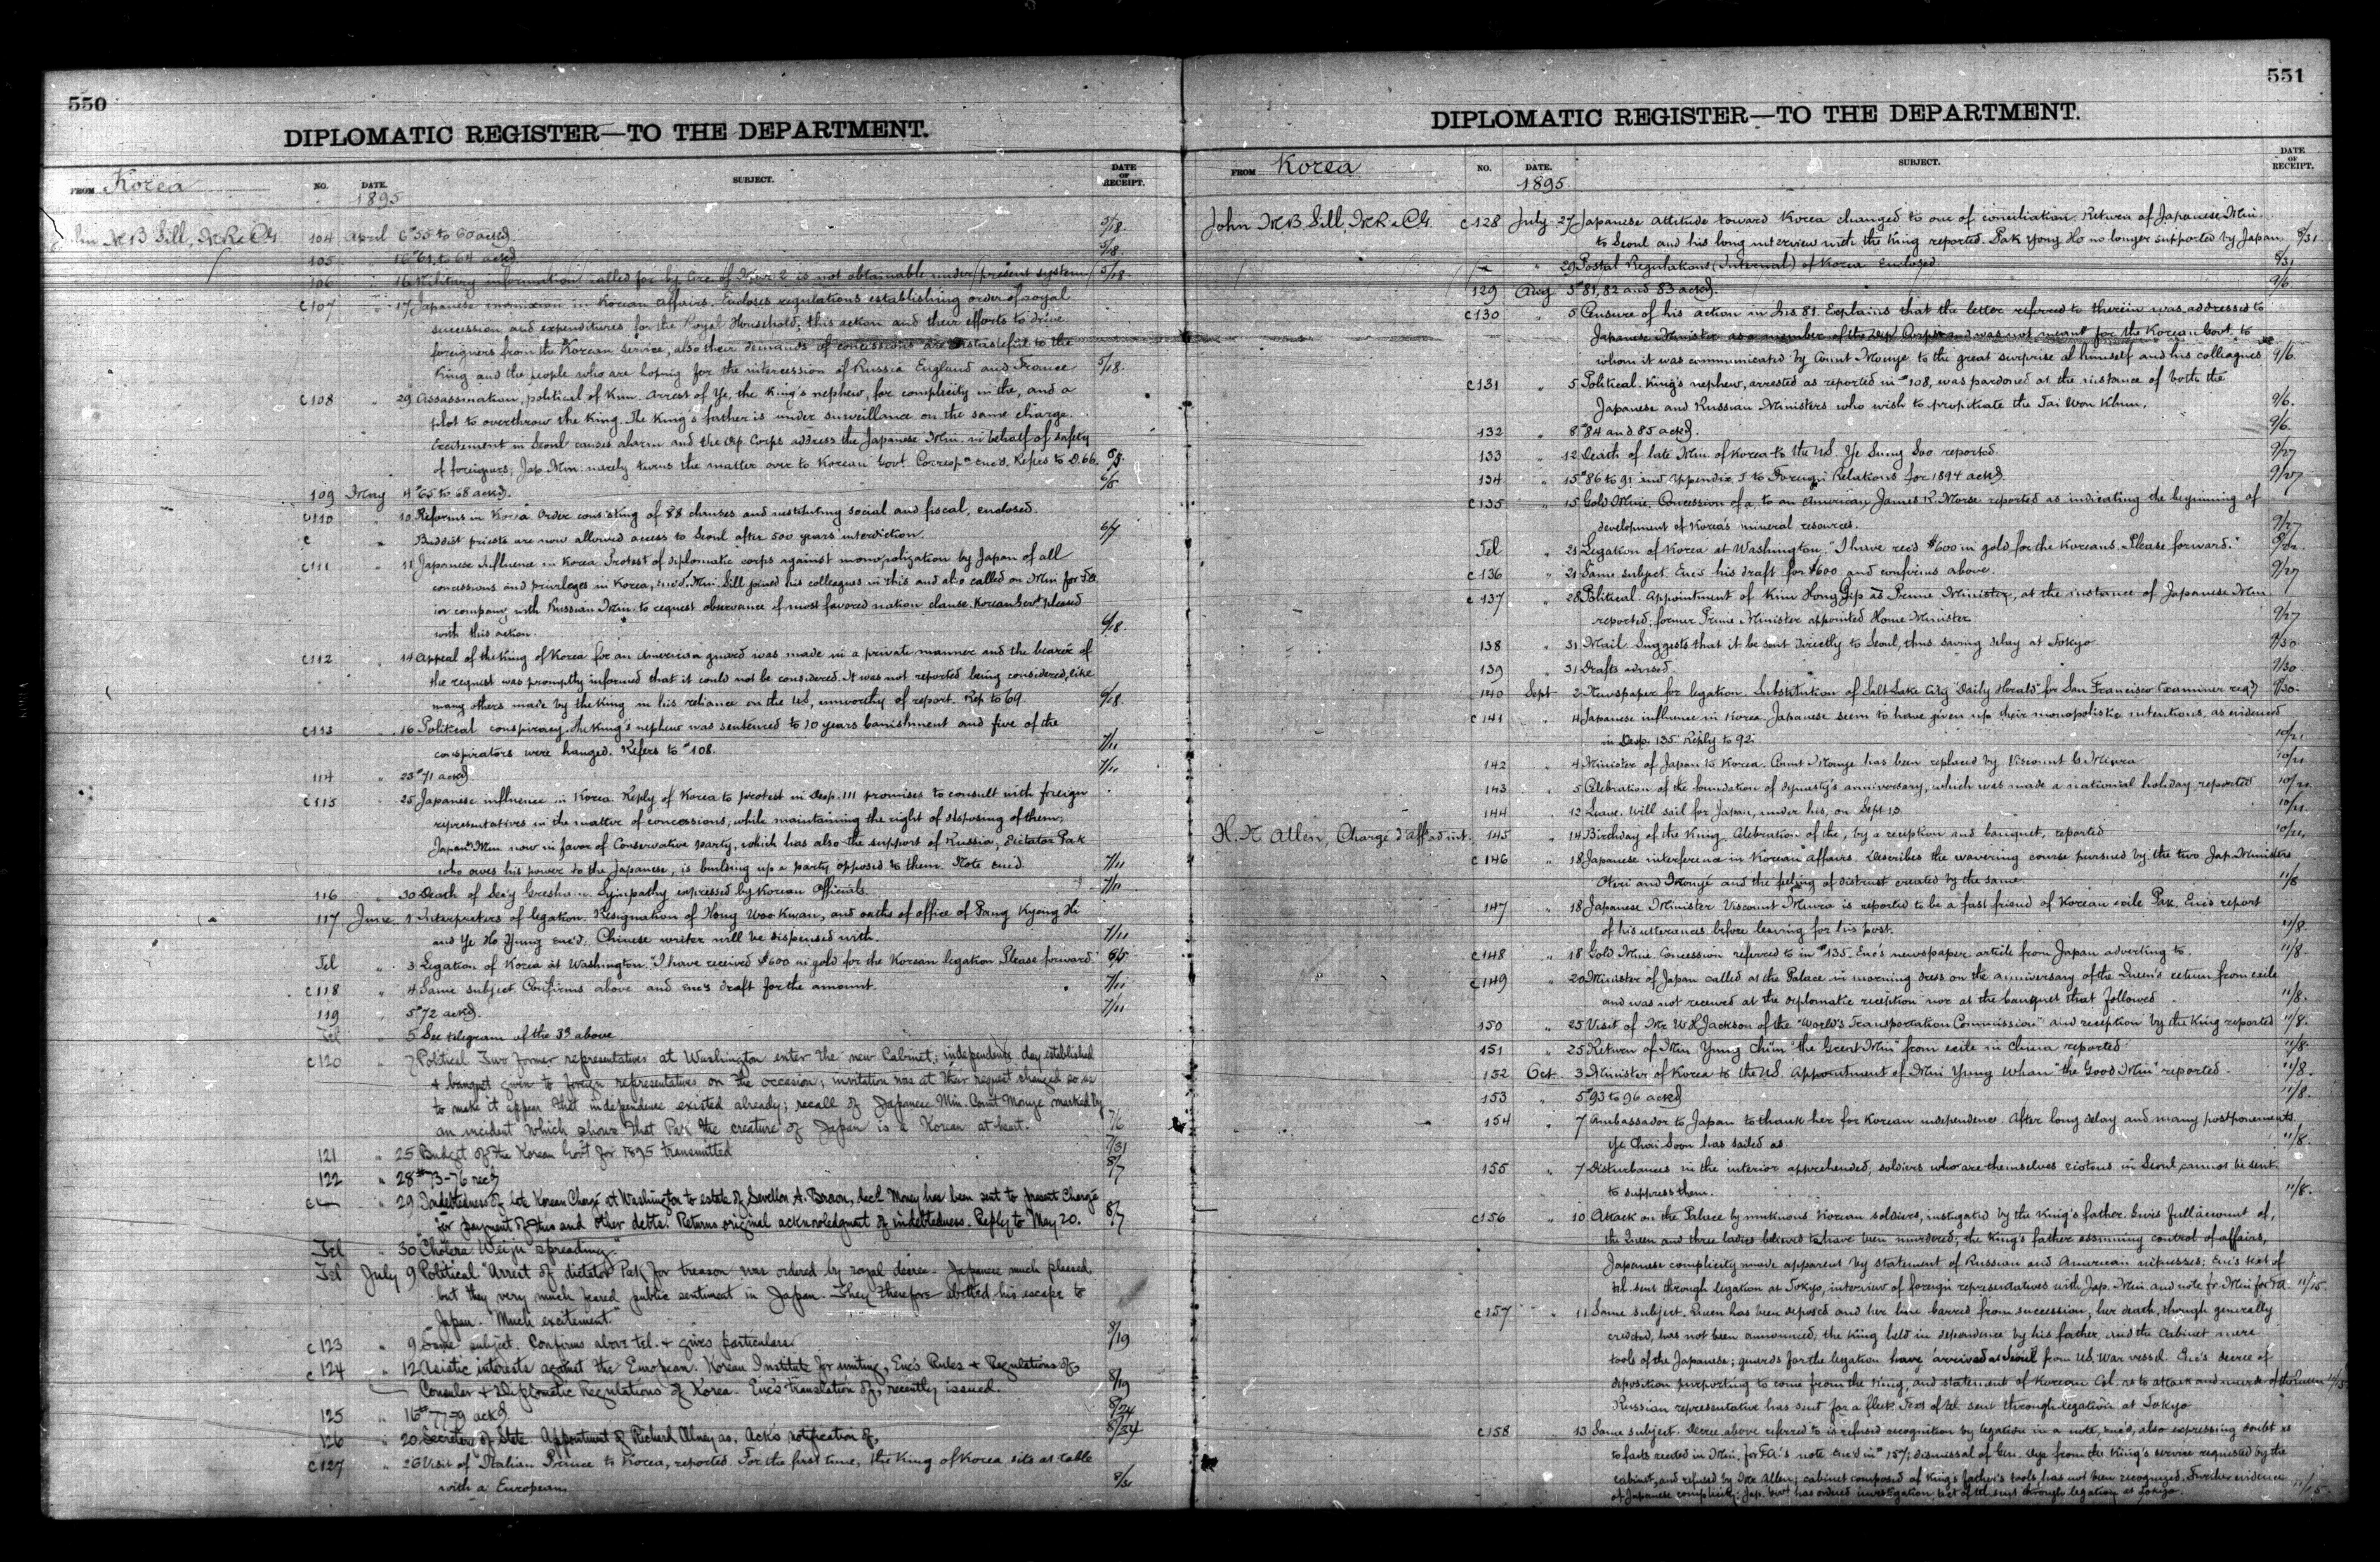 550
DIPLOMATIC REGISTER—TO THE DEPARTMENT.
FROM Korea
NO. DATE. SUBJECT. DATE OF RECEIPT.
1895
104 April 6 #55 to 60 ackd. 5/18.
105 " 16 #61 to 64 ackd. 5/18.
106 " 16 Military information called for by Circ. of is not obtainable under present system 5/18
C107 " 17 Japanese in Korean affairs. Encloses regulations establishing order of royal
succession and expenditures for the Royal Household; this action and their efforts to drive
foreigners from the Korean service, also their demands of concessions are distasteful to the
King and the people who are hoping for the intercession of Russia England and France 5/18.
C108 " 29 Assassination, political, of Kim. Arrest of Ye, the King's nephew, for complicity in the, and a
plot to overthrow the King. The King's father is under surveillance on the same charge.
Excitement in Seoul causes alarm and the Dip. Corps address the Japanese Min. in behalf of safety
of foreigners; Jap. Min. merely turns the matter over to Korean Govt. Corresp. enc'd. Refers to D. 66. 6/5.
109 May 4 #65 to 68 ackd. 6/5
C110 " 10 Reforms in Korea Order consisting of 88 clauses and instituting social and fiscal, enclosed.
C " Buddist priests are now allowed access to Seoul after 500 years' interdiction. 6/7
C111 " 11 Japanese Influence in Korea. Protest of diplomatic corps against monopolization by Japan of all
concessions and privileges in Korea, enc'd. Min. Sill joined his colleagues in this and also called on Min for FA
in company with Russian Min. to request observance of most favored nation clause. Korean Govt pleased
with this action. 6/18.
C112 " 14 Appeal of the King of Korea for an American guard was made in a private manner and the bearer of
the request was promptly informed that it could not be considered. It was not reported being considered, like
many others made by the King in his reliance on the US, unworthy of report. Rep to 69. 6/18.
C113 " 16 Political conspiracy. The King's nephew was sentenced to 10 years banishment and five of the
conspirators were hanged. Refers to #108. 7/11
114 " 23 #71 ackd 7/11
C115 " 25 Japanese influence in Korea. Reply of Korea to protest in Desp. 111 promises to consult with foreign
representatives in the matter of concessions, while maintaining the right of disposing of them;
Japan's Min now in favor of Conservative party, which has also the support of Russia; dictator Pak
who owes his power to the Japanese, is building up a party opposed to them. Note enc'd. 7/11
116 " 30 Death of Sec'y Gresham. Sympathy expressed by Korean Officials. 7/11
117 June 1 Interpreters of legation. Resignation of Hong Woo Kwan, and oaths of office of Pang Kyeng Hi
and Ye Ho Yung enc'd. Chinese writer will be dispensed with. 7/11
Tel " 3 Legation of Korea at Washington "I have received $600 in gold for the Korean legation Please forward" 6/5
C118 " 4 Same subject Confirms above and enc's draft for the amount. 7/11
119 " 5 #72 ackd. 7/11
Tel " 5 See telegram of the 3d above
C120 " 7 Political Two former representatives at Washington enter the new Cabinet; independence day established
& banquet given to foreign representatives on the occasion; invitation was at their request changed so as
to make it appear that independence existed already; recall of Japanese Min. Count Inouye marked by
an incident which shows that Pak the creature of Japan is a Korean at heart. 7/6
121 " 25 Budget of the Korean Gov't for 1895 transmitted 7/31
122 " 28 #73-76 recd 8/7
C " 29 Indebtedness of late Korean Chargé at Washington to estate of Sevellon A. Brown, decd. Money has been sent to present Chargé
for payment of this and other debts. Returns original acknowledgment of indebtedness. Reply to May 20. 8/7
Tel " 30 "Cholera Weiju spreading."
Tel July 9 Political "Arrest of dictator Pak for treason was ordered by royal decree. Japanese much pleased
but they very much feared public sentiment in Japan. They therefore abetted his escape to
Japan. Much excitement."
C123 " 9 Same subject. Confirms above tel. & gives particulars. 8/19
C124 " 12 Asiatic interests against the European. Korean Institute for uniting, Enc's Rules & Regulations of,
Consular & Diplomatic Regulations of Korea. Enc's translation of, recently issued. 8/19
125 " 16 #77-9 ackd 8/24
126 " 20 Secretary of State. Appointment of Richard Olney as. Ack's notification of, 8/24
C127 " 26 Visit of Italian Prince to Korea, reported. For the first time, the King of Korea sits at table
with a European.
551
DIPLOMATIC REGISTER—TO THE DEPARTMENT.
FROM Korea
NO. DATE. SUBJECT. DATE OF RECEIPT.
1895
John M B Sill, M R & C G. C128 July 27 Japanese attitude toward Korea changed to one of conciliation. Return of Japanese Min.
to Seoul and his long interview with the King reported. Pak Yong Ho no longer supported by Japan 8/31
" 29 Postal Regulations (Internal) of Korea enclosed 8/31
129 Aug 5 #81, 82 and 83 ackd. 9/6
C130 " 5 Censure of his action in Ins 81. Explains that the letter referred to therein was addressed to
Japanese Minister as a member of the Dip. Corps and was not meant for the Korean Govt. to
whom it was communicated by Count Inouye to the great surprise of himself and his colleagues 9/6.
C131 " 5 Political. King's nephew, arrested as reported in #108, was pardoned at the instance of both the
Japanese and Russian Ministers who wish to propitiate the Tai Won Khun. 9/6.
132 " 8 #84 and 85 ackd. 9/6.
133 " 12 Death of late Min. of Korea to the US. Ye Sung Soo reported. 9/27
134 " 15 #86 to 91 and Appendix I to Foreign Relations for 1894 ackd 9/27
C135 " 15 Gold Mine. Concession of a, to an American, James R. Morse reported as indicating the beginning of
development of Korea's mineral resources. 9/27
Tel " 21 Legation of Korea at Washington. "I have rec'd $600 in gold for the Koreans. Please forward."
C136 " 21 Same subject. Enc's his draft for $600 and confirms above. 9/27
C137 " 28 Political. Appointment of Kim Hong Jip as Prime Minister, at the instance of Japanese Min
reported; former Prime Minister appointed Home Minister 9/27
138 " 31 Mail. Suggests that it be sent directly to Seoul, thus saving delay at Tokyo 9/30
139 " 31 Drafts advised. 9/30
140 Sept 2 Newspaper for legation. Substitution of Salt Lake City "Daily Herald" for San Francisco Examiner req'd 9/30.
C141 " 4 Japanese influence in Korea. Japanese seem to have given up their monopolistic intentions, as evidenced
in Desp. 135 Reply to 92. 10/21
142 " 4 Minister of Japan to Korea. Count Inouye has been replaced by Viscount G Miura 10/21
143 " 5 Celebration of the foundation of dynasty's anniversary, which was made a national holiday reported 10/21
144 " 12 Leave. Will sail for Japan, under his, on Sept 13. 10/21
H. N. Allen, Chargé d'aff. ad int. 145 " 14 Birthday of the King, Celebration of the, by a reception and banquet, reported 10/21.
C146 " 18 Japanese interference in Korean affairs. Describes the wavering course pursued by the two Jap. Ministers
Otori and Inouyé and the feeling of distrust created by the same. 11/8
147 " 18 Japanese Minister Viscount Miura is reported to be a fast friend of Korean exile Pak. Enc's report
of his utterances before leaving for his post. 11/8.
C148 " 18 Gold Mine Concession referred to in #135. Enc's newspaper article from Japan adverting to. 11/8.
C149 " 20 Minister of Japan called at the Palace in morning dress on the anniversary of the Queen's return from exile
and was not received at the diplomatic reception nor at the banquet that followed. 11/8.
150 " 25 Visit of Mr W H Jackson of the "World's Transportation Commission" and reception by the King reported 11/8.
151 " 25 Return of Min Yung Chun "the Great Min" from exile in China reported 11/8.
152 Oct 3 Minister of Korea to the US. Appointment of Min Yung Whan "the Good Min" reported. 11/8.
153 " 5 #93 to 96 ackd 11/8.
154 " 7 Ambassador to Japan to thank her for Korean independence. After long delay and many postponements
Ye Chai Soon has sailed as. 11/8.
155 " 7 Disturbances in the interior apprehended; soldiers who are themselves riotous in Seoul, cannot be sent
to suppress them. 11/8.
C156 " 10 Attack on the Palace by mutinous Korean soldiers, instigated by the King's father. Gives full account of,
the Queen and three ladies believed to have been murdered; the King's father assuming control of affairs,
Japanese complicity made apparent by statement of Russian and American witnesses; Enc's text of
tel. sent through legation at Tokyo, interview of foreign representatives with Jap. Min and note fr Min for FA 11/15.
C157 " 11 Same subject. Queen has been deposed and her line barred from succession, her death, though generally
credited, has not been announced; the King held in dependence by his father, and the Cabinet mere
tools of the Japanese; guards for the legation have arrived at Seoul from US War vessel. Enc's decree of
deposition purporting to come from the King, and statement of Korean Col. as to attack and murder of the Queen 11/15
Russian representative has sent for a fleet. Text of tel sent through legation at Tokyo
C158 " 13 Same subject. Decree above referred to is refused recognition by legation in a note, enc'd, also expressing doubt as
to facts recited in Min. for FA's note enc'd in #157; dismissal of Gen. Dye from the King's service requested by the
cabinet, and refused by Mr Allen; cabinet composed of King's father's tools, has not been recognized. Further evidence
of Japanese complicity; Jap. Govt has ordered investigation; text of tel. sent through legation at Tokyo. 11/15.